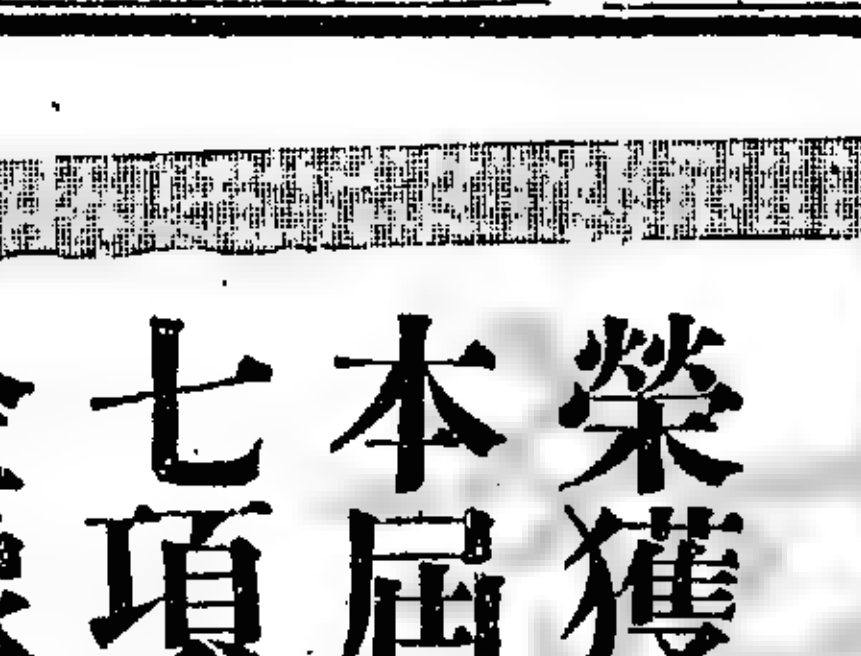 榮獲
本屆
七項